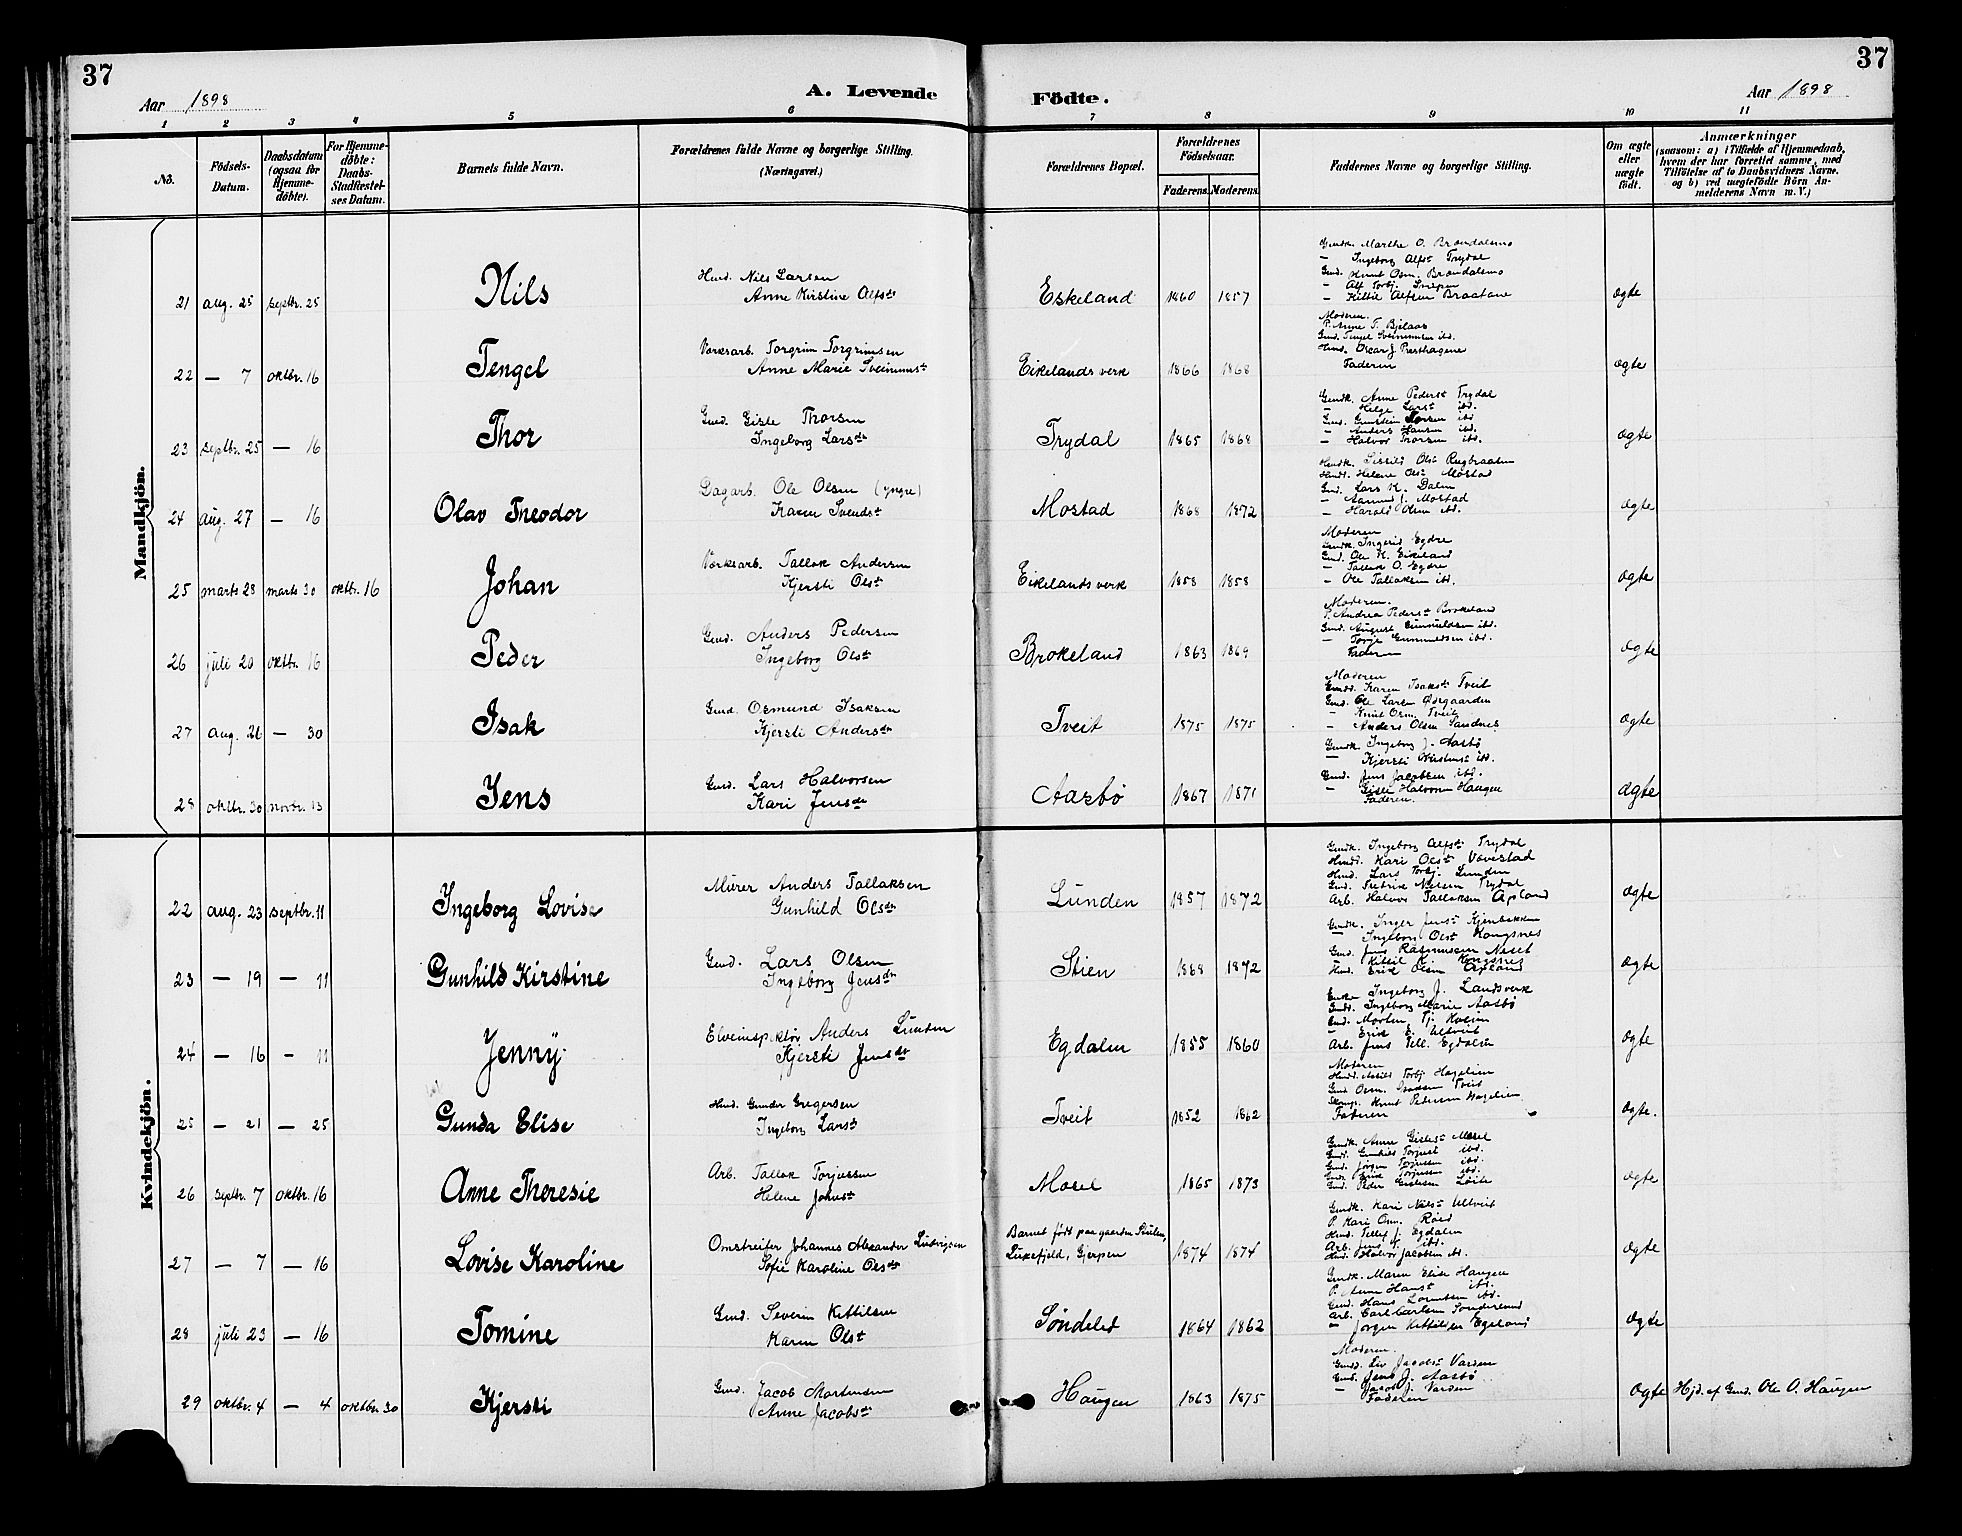 37
37
Aar 1898
A. Levende Födte.
Aar 1898
1 2 3 4 5 6 7 8 9 10 11
No.
Födsels-Datum.
Daabsdatum (ogsaa for Hjemme-döbte).
For Hjemme-döbte: Daabs-Stadfæstel-ses Datum.
Barnets fulde Navn.
Forældrenes fulde Navne og borgerlige Stilling. (Næringsvei.)
Forældrenes Bopæl.
Forældrenes Födselsaar.
Faderens. Moderens.
Faddernes Navne og borgerlige Stilling.
Om ægte eller uægte födt.
Anmærkninger
(saasom: a) i Tilfælde af Hjemmedaab, hvem der har forrettet samme, med Tilföielse af to Daabsvidners Navne, og b) ved uægtefödte Börn An-melderens Navn m. V.)
Mandkjön.
21 aug. 25 septbr. 25 Nils
Husd. Nils Larsen
Anne Kirstine Alfsdr
Eskeland 1860 1857
Gmdk. Marthe O. Brændalsmo
— Ingeborg Alfsdr Trydal
Gmd. Knut Osm. Brændalsmo
— Alf Torbj.
— Kittil Alfsen Braatane
ægte
22 — 7 oktbr. 16 Tengel
Verksarb. Torgrim Torgrimsen
Anne Marie Sveinunsdr
Eikelands verk 1866 1868
Moderen.
P. Anne T. Bjelaas
Gmd. Tengel Sveinunsen ibd.
Husd. Oscar J. Præsthagene
Faderen
ægte
23 septbr. 25 — 16 Thor
Gmd. Gisle Thorsen
Ingeborg Larsdr
Trydal 1865 1868
Gmdk. Anne Pedersdr Trydal
— Helge Larsdr ibd.
Gmd. Gunstein Torsen ibd
— Anders Hansen ibd.
— Halvor Thorsen ibd.
ægte
24 aug. 27 — 16 Olav Theodor
Dagarb. Ole Olsen (yngre)
Karen Svendsdr
Mostad 1868 1872
Husdk. Sissild Olsdr Rugbraaten
Husdk. Helene Olsdr Mostad
Gmd. Lars K. Dalen
— Aanund J. Mostad
— Harald Olsen ibd.
ægte
25 marts 28 marts 30 oktbr. 16 Johan
Verksarb. Tallak Andersen
Kjersti Olsdr
Eikelands verk 1858 1858
Moderen
Gmdk. Ingerid Egdre
Gmd. Ole K. Eikeland
— Tallak O. Egdre
— Ole Tallaksen ibd.
ægte
26 juli 20 oktbr. 16 Peder
Gmd. Anders Pedersen
Ingeborg Olsdr
Brokeland 1863 1869
Moderen.
P. Andrea Pedersdr Brokeland
Gmd. August Gunnuldsen ibd.
— Torje Gunnuldsen ibd.
Faderen
ægte
27 aug. 26 — 30 Isak
Gmd. Osmund Isaksen
Kjersti Andersdr
Tveit 1875 1875
Moderen
Gmdd. Karen Isaksdr Tveit
Gmd. Ole Larsen Østgaarden
— Knut Osm. Tveit
— Anders Olsen Sandnes
ægte
28 oktbr. 30 novbr. 13 Jens
Gmd. Lars Halvorsen
Kari Jensdr
Aasbø 1867 1871
Gmdk. Ingeborg J. Aasbø
— Kjersti ibd.
Gmd. Jens Jacobsen ibd.
— Gisle Halvorsen Haugen
Faderen.
ægte
Kvindekjön.
22 aug. 23 septbr. 11 Ingeborg Lovise
Murer Anders Tallaksen
Gunhild Olsdr
Lunden 1857 1872
Gmdk. Ingeborg Alfsdr Trydal
Husd. Kari Olsdr Vævestad
Husd. Lars Torbj. Lunden
Gmd. Fredrik Nielsen Trydal
Arb. Halvor Tallaksen Apland
ægte
23 — 19 — 11 Gunhild Kirstine
Gmd. Lars Olsen
Ingeborg Jensdr
Stien 1868 1872
Gmdk. Inger Jensdr Kjenbekken
— Ingeborg Olsdr Kongsnes
Gmd. Jens Rasmussen Neset
— Kittil K. Kongsnes
Husd. Erik Olsen Apland
ægte
24 — 16 — 11 Jenny
Elveinspektör Anders Lunden
Kjersti Jensdr
Egdalen 1855 1860
Enke Ingeborg J. Landsverk
Gmdd. Ingeborg Marie Aasbø
Gmd. Morten Tj. Kveim
— Erik E. Ultveit
Arb. Jens Tell. Egdalen
ægte
25 — 21 — 25 Gunda Elise
Husd. Gunder Gregersen
Ingeborg Larsdr
Tveit 1852 1862
Moderen
Husd. Torbj Hagelien
Gmd. Osm. Isaksen Tveit
Knut Pedersen Hagelien
Faderen
ægte.
26 septbr. 7 oktbr. 16 Anne Theresie
Arb. Tallak Torjussen
Helene Johnsdr
Mosel 1865 1873
Gmdk. Anne Gislesdr Mosel
Gmdd. Gunhild Torjusdr ibd.
Gmd. Jörgen Torjussen ibd.
Gmds. Torjussen ibd.
Gmd. Peder Gislesen Løite
ægte
27 — 7 — 16 Lovise Karoline
Omstreifer Johannes Alexander Ludvigsen
Sofie Karoline Olsdr
Barnet født paa gaarden Stulen, Luxefjeld, Gjerpen
1874 1874
Gmdk. Kari Nilsdr Ultveit
P. Kari Osm. Røed
Husd. Tellef J. Egdalen
Arb. Jens J. ibd.
Husd. Halvor Jacobsen ibd.
ægte
28 juli 23 — 16 Tomine
Gmd. Severin Kittilsen
Karen Olsdr
Søndeled 1864 1862
Gmdk. Maren Elise Haugen
P. Anne Hansdr ibd.
Gmd. Hans Lorentsen ibd.
Arb. Carl Carlsen
— Jørgen Kittilsen Egeland
ægte
29 oktbr. 4 — 4 oktbr. 30 Kjersti
Gmd. Jacob Mortensen
Anne Jacobsdr
Haugen 1863 1875
Moderen.
Gmdd. Liv Jacobsdr Varden
Gmds. Jens J. Aasbø
— Jacob J. Varden
Faderen
ægte Hjd. af Gmd. Ole O. Haugen